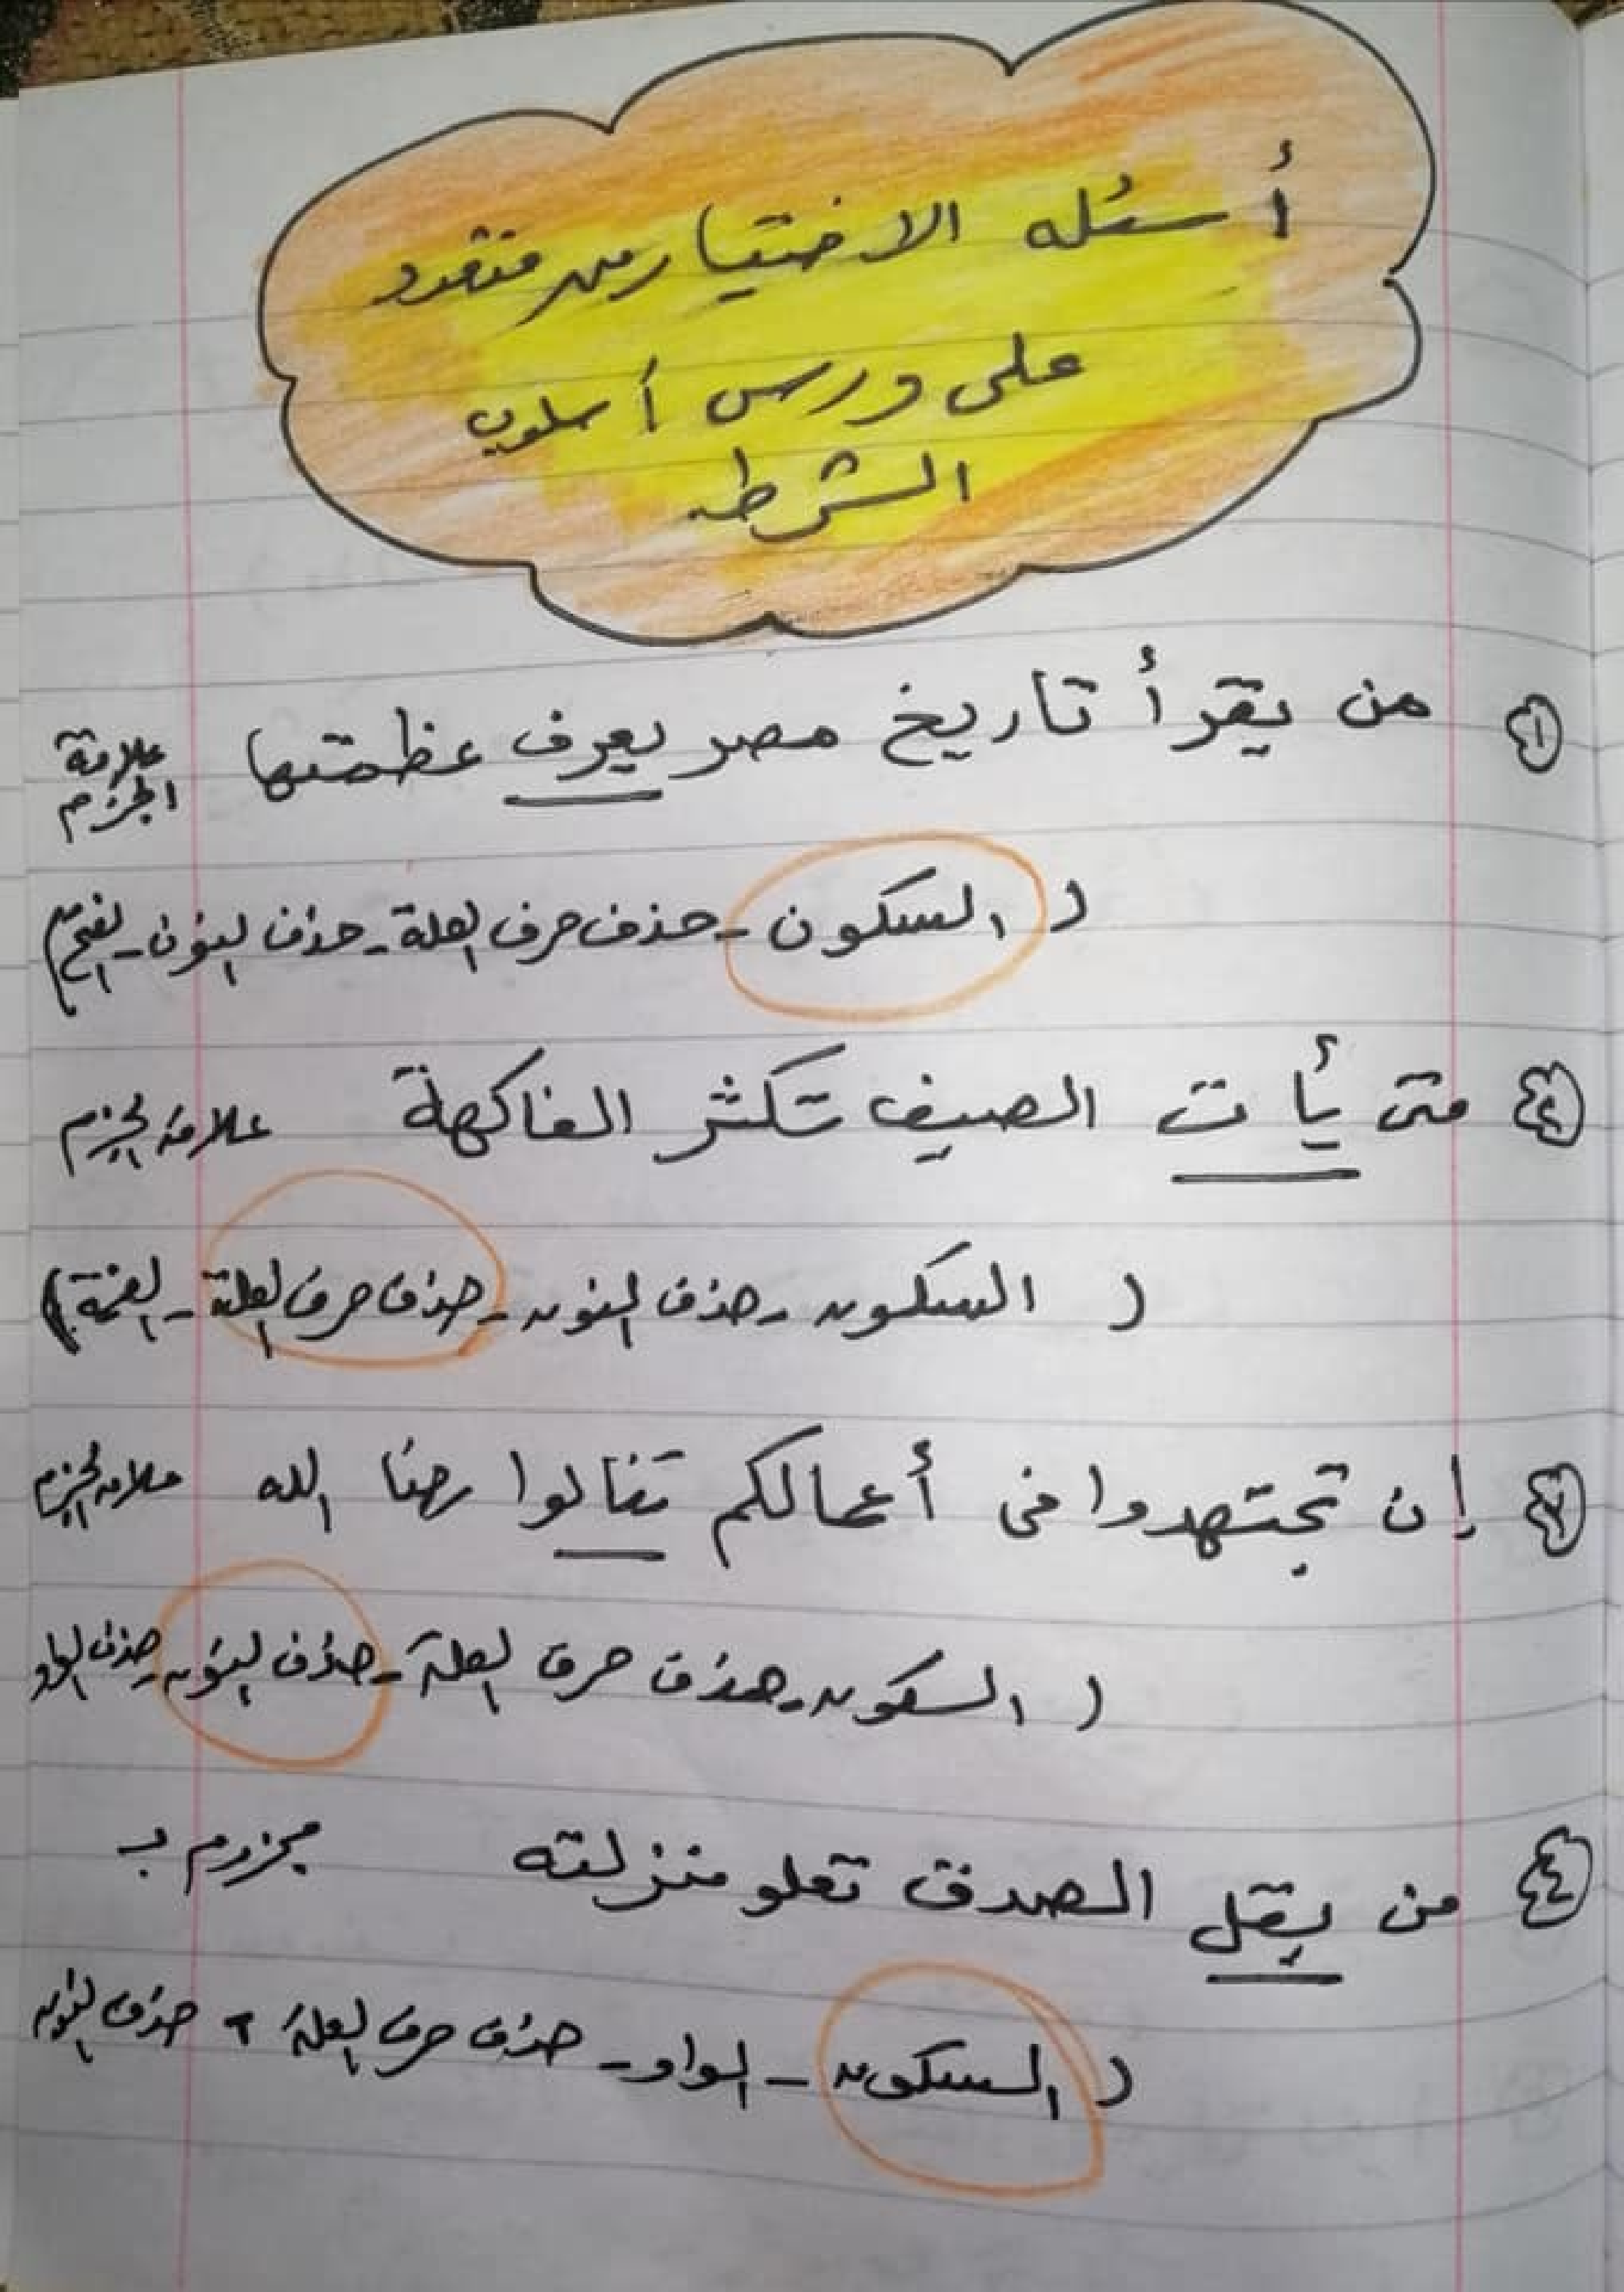 أسئله الاختيار من متعدد
على درس أسلوب
الشرط
١ من يقرأ تاريخ مصر يعرف عظمتها علامة الجزم
( السكون - حذف حرف العلة - حذف النون - الفتح )
٢ متى يأت الصيف تكثر الفاكهة علامة الجزم
( السكون - حذف النون - حذف حرف العلة - الضمة )
٣ إن تجتهدوا فى أعمالكم تنالوا رضا الله علامة الجزم
( السكون - حذف حرف العلة - حذف النون - حذف الواو
٤ من يقل الصدق تعلو منزلته مجزوم بـ
( السكون - الواو - حذف حرف العلة - حذف النون